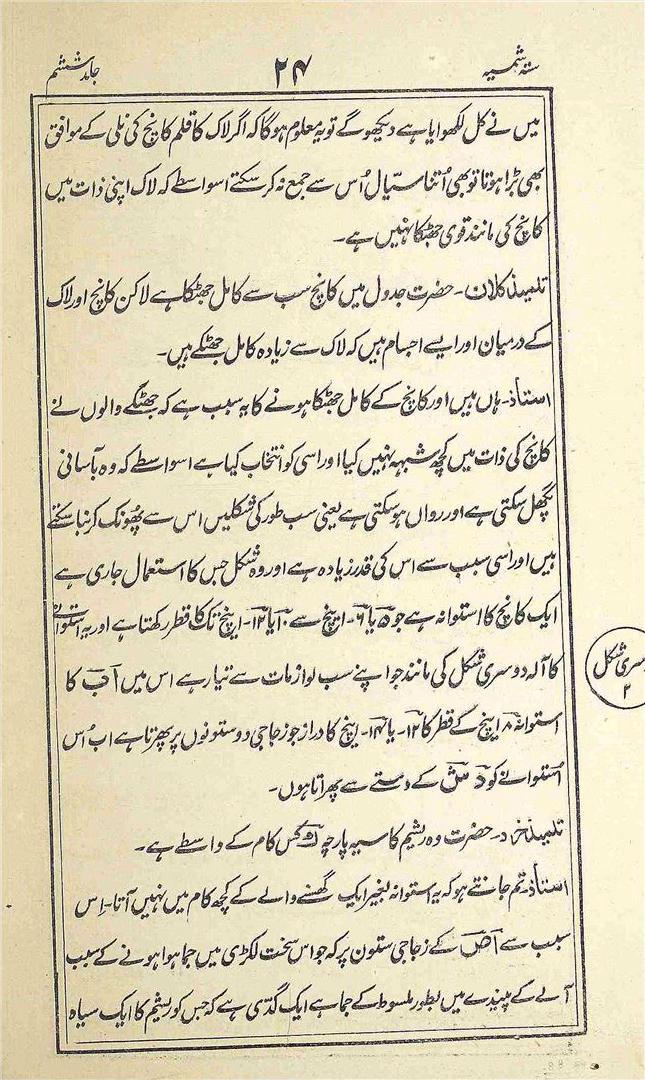 ستہ شمسیہ ۲۴ جلد ششم
میں نے کل لکھوایا ہے دیکھو گے تو یہ معلوم ہوگا کہ اگر لاک کا قلم کانچ کی نلی کے موافق
بھی بڑا ہوتا تو بھی اُتنا سیّال اُس سے جمع نہ کر سکتے اسواسطے کہ لاک اپنی ذات میں
کانچ کی مانند قوی جھٹکا نہیں ہے۔
تلمیذ کلان۔ حضرت جدول میں کانچ سب سے کامل جھٹکا ہے لاکن کانچ اور لاک
کے درمیان اور ایسے اجسام ہیں کہ لاک سے زیادہ کامل جھٹکے ہیں۔
استاذ۔ ہاں ہیں اور کانچ کے کامل جھٹکا ہونے کا یہ سبب ہے کہ جھٹکے والوں نے
کانچ کی ذات میں کچھ شبہہ نہیں کیا اور اسی کو انتخاب کیا ہے اسواسطے کہ وہ بآسانی
پگھل سکتی ہے اور رواں ہو سکتی ہے یعنی سب طور کی شکلیں اس سے پھونک کر بنا سکتے
ہیں اور اسی سبب سے اس کی قدر زیادہ ہے اور وہ شکل جس کا استعمال جاری ہے
ایک کانچ کا استوانہ ہے جو ۵ یا ۶۔ اینچ سے ۱۰ یا ۱۲۔ اینچ تک کا قطر رکھتا ہے اور یہ استوانے
کا آلہ دوسری شکل کی مانند جو اپنے سب لوازمات سے تیار ہے اس میں اَبَ کا
استوانہ ۸ اینچ کے قطر کا ۱۲۔ یا ۱۴۔ اینچ کا دراز جو زجاجی دو ستونوں پر پھرتا ہے اب اُس
اُستوانے کو دَ سَ کے دستے سے پھراتا ہوں۔
دوسری شکل
۲
تلمیذ خرد۔ حضرت وہ ریشم کا سیہ پارچہ کس کام کے واسطے ہے۔
استاذ۔ تم جانتے ہو کہ یہ استوانہ بغیر ایک گھسنے والے کے کچھ کام میں نہیں آتا۔ اِس
سبب سے کے زجاجی ستون پر کہ جو اس سخت لکڑی میں جما ہوا ہونے کے سبب
آلے کے پیندے میں بطور ملسوط کے جما ہے ایک گدّی ہے کہ جس کو ریشم کا ایک سیاہ